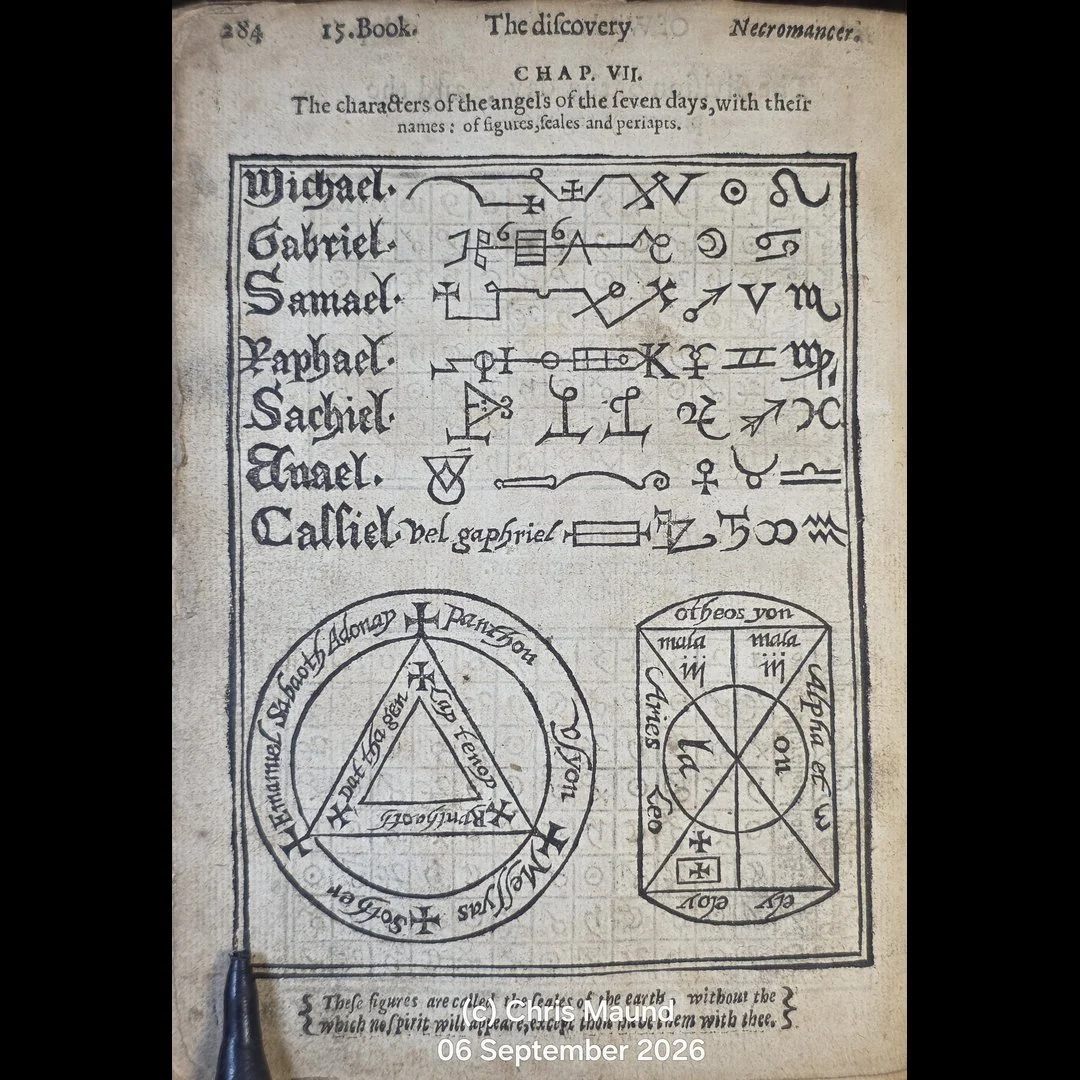 284 15.Book. The diſcovery Necromancer.
CHAP. VII.
The characters of the angels of the ſeven days, with their
names: of figures, ſeales and periapts.
Michael.
Gabriel.
Samael.
Raphael.
Sachiel.
Anael.
Caſſiel. vel gaphriel
Emanuel Sabaoth Adonay ✠ panthon
Vſyon ✠ Meſſyas ✠ Sother ✠
otheos yon
mala mala
iij iij
Aries Leo
la on
Alpha et ω
eloy ely
Theſe figures are called the ſeales of the earth, without the
which no ſpirit will appeare, except thou have them with thee.
(c) Chris Maund
06 September 2026